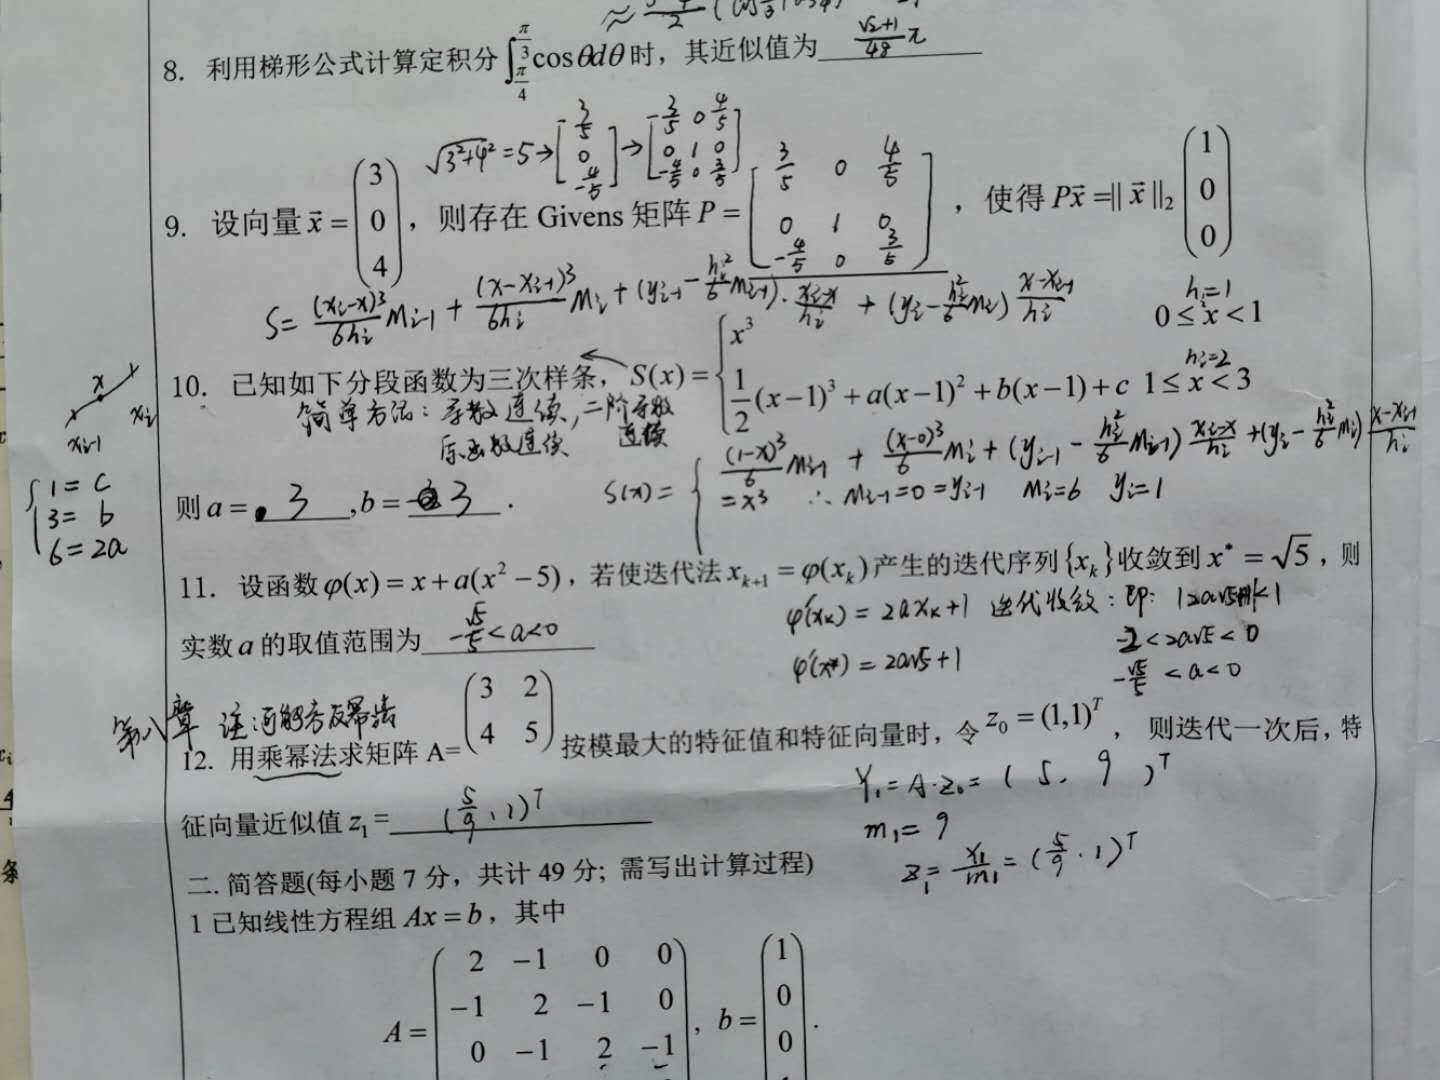 8. 利用梯形公式计算定积分∫_{π/4}^{π/3} cosθdθ时，其近似值为 (√2+1)/48 π
√(3²+4²) = 5 → [-3/5 0 -4/5] → [-3/5 0 4/5; 0 1 0; -4/5 0 3/5]
9. 设向量 x⃗ = (3 0 4)，则存在 Givens 矩阵 P = [3/5 0 4/5; 0 1 0; -4/5 0 3/5]，使得 Px⃗ = ‖x⃗‖₂ (1 0 0)
S = (xi-x)³/6hi Mi-1 + (x-xi-1)³/6hi Mi + (yi-1 - hi²/6 Mi-1)·(xi-x)/hi + (yi - hi²/6 Mi) (x-xi-1)/hi
hi=1
10. 已知如下分段函数为三次样条，S(x) = { x³ 0 ≤ x < 1
hi=2
1/2(x−1)³ + a(x−1)² + b(x−1) + c 1 ≤ x < 3
简单方法：导数连续，二阶导数连续
原函数连续
x
xi-1 xi
S(x) = { (1-x)³/6 Mi-1 + (x-0)³/6 Mi + (yi-1 - hi²/6 Mi-1) (xi-x)/hi + (yi - hi²/6 Mi) (x-xi-1)/hi
= x³ ∴ Mi-1 = 0 = yi-1 Mi=6 yi=1
{ 1 = c
3 = b
6 = 2a
则 a = 3 , b = 3 .
11. 设函数φ(x) = x + a(x² − 5)，若使迭代法 x_{k+1} = φ(x_k) 产生的迭代序列{x_k}收敛到 x* = √5，则
实数 a 的取值范围为 -√5/5 < a < 0
φ'(xk) = 2axk+1 迭代收敛：即：|2a√5+1|<1
φ'(x*) = 2a√5+1
-2 < 2a√5 < 0
-√5/5 < a < 0
第八章 注：反幂法
12. 用乘幂法求矩阵 A= (3 2; 4 5) 按模最大的特征值和特征向量时，令 z₀ = (1,1)ᵀ， 则迭代一次后，特
征向量近似值 z₁ = (5/9, 1)ᵀ
Y₁ = A·z₀ = (5, 9)ᵀ
m₁ = 9
z₁ = Y₁/m₁ = (5/9, 1)ᵀ
二. 简答题(每小题 7 分，共计 49 分; 需写出计算过程)
1 已知线性方程组 Ax = b，其中
A = ( 2 −1 0 0
−1 2 −1 0
0 −1 2 −1
, b = ( 1 0 0 .